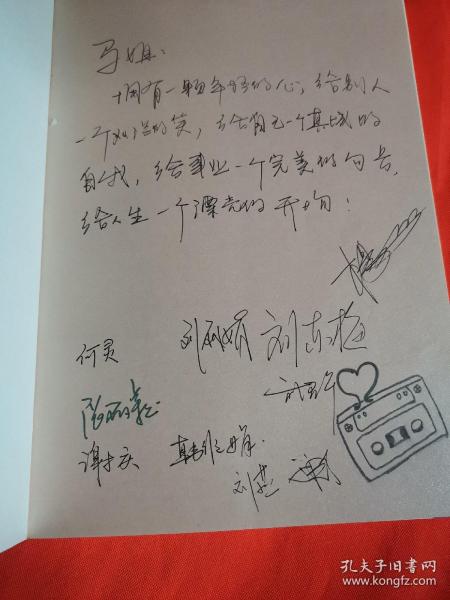 马姐：
拥有一颗年轻的心，给别人
一个灿烂的笑，给自己一个真诚的
自我，给事业一个完美的句号，
给人生一个漂亮的开始！
何灵 刘丽娟 刘东梅
谢才庆
刘燕
孔夫子旧书网
www.kongfz.com